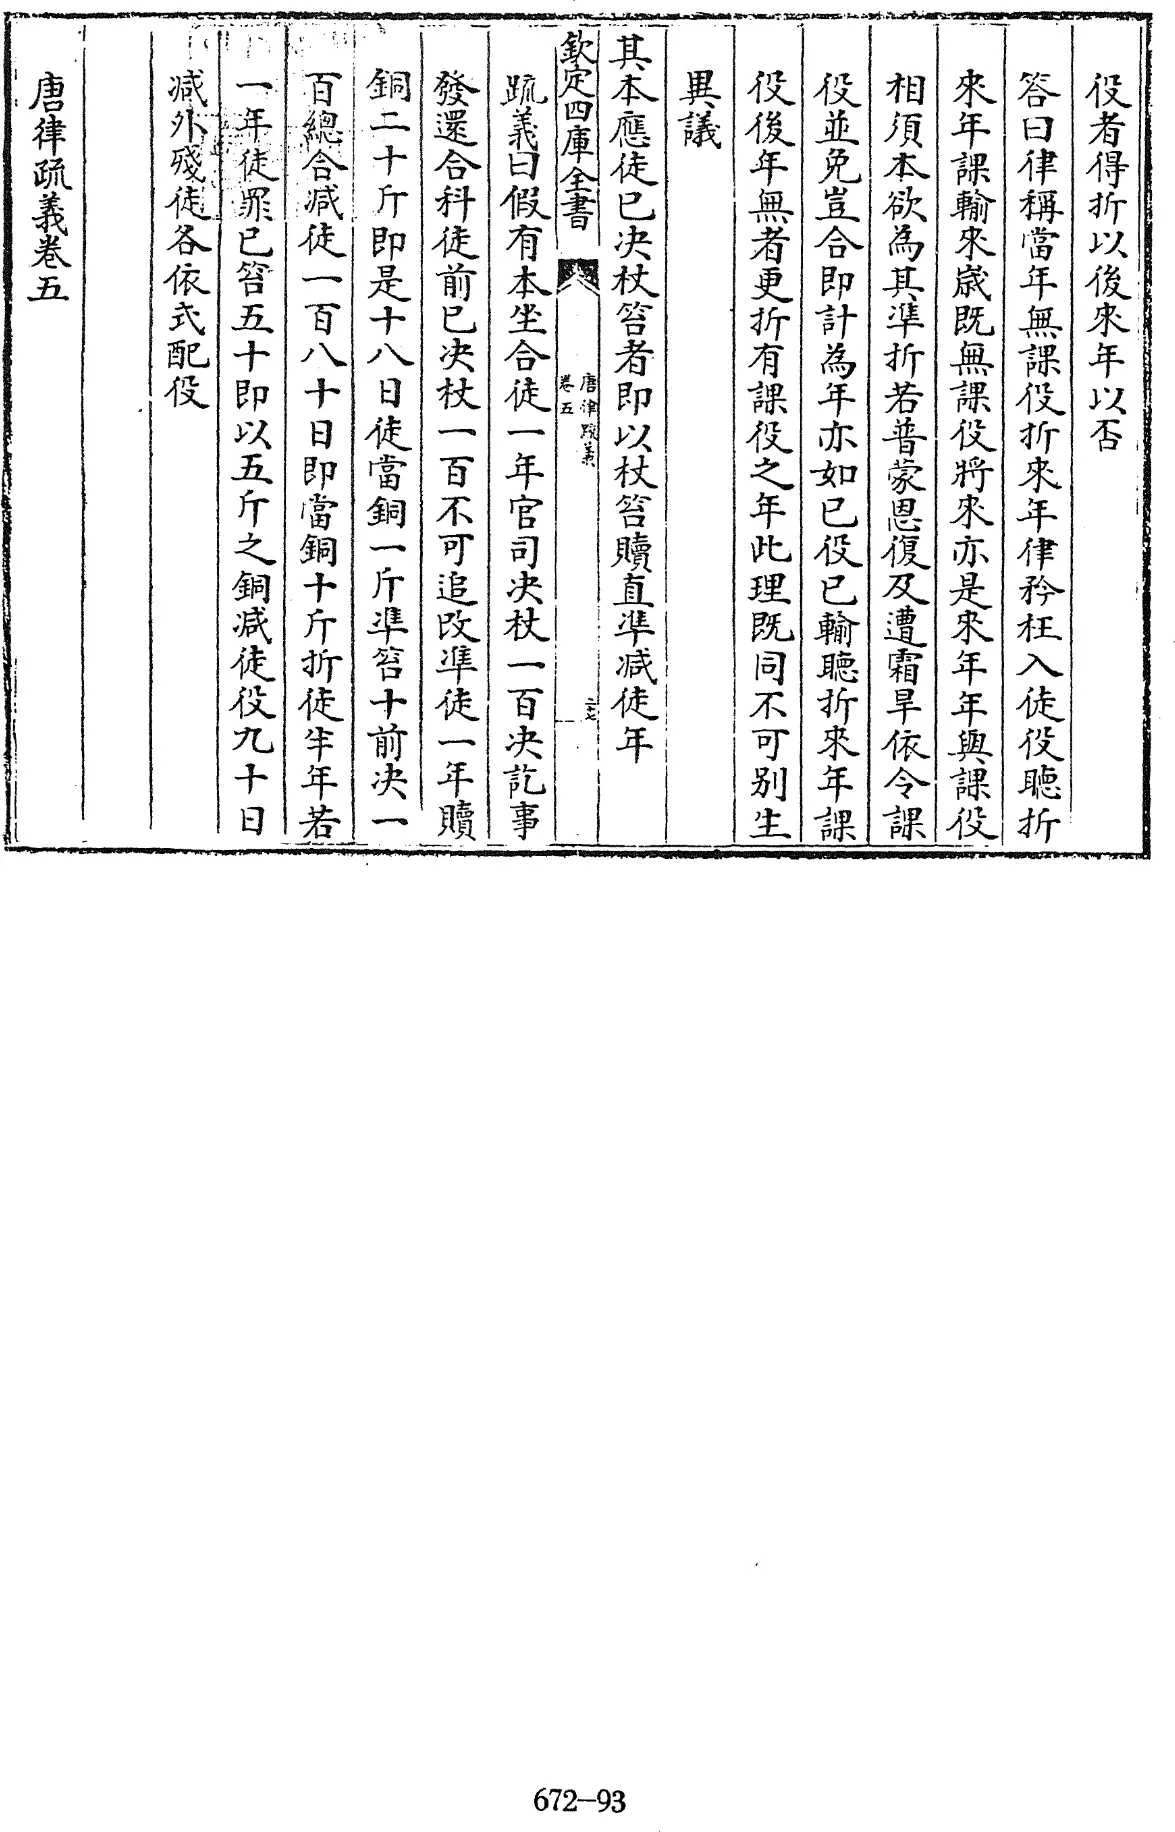 役者得折以後來年以否
答曰律稱當年無課役折來年律矜枉入徒役聽折
來年課輸來歲既無課役將來亦是來年年與課役
相須本欲為其準折若普蒙恩復及遭霜旱依令課
役並免豈合即計為年亦如已役已輸聽折來年課
役後年無者更折有課役之年此理既同不可別生
異議
其本應徒已決杖笞者即以杖笞贖直準減徒年
欽定四庫全書
唐律疏義
卷五
疏義曰假有本坐合徒一年官司決杖一百決訖事
發還合科徒前已決杖一百不可追改準徒一年贖
銅二十斤即是十八日徒當銅一斤準笞十前決一
百總合減徒一百八十日即當銅十斤折徒半年若
一年徒罪已笞五十即以五斤之銅減徒役九十日
減外殘徒各依式配役
唐律疏義卷五
672-93